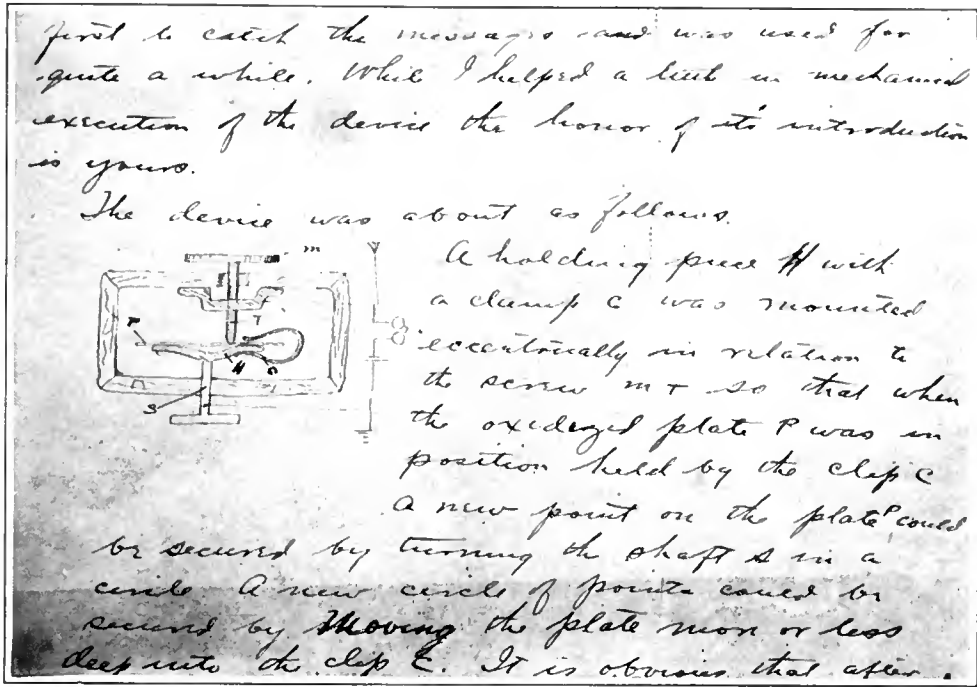 first to catch the messages and was used for
quite a while. While I helped a little in mechanical
execution of the device the honor of it's introduction
is yours.
The device was about as follows.
m
T
P
H
C
S
A holding piece H with
a clamp C was mounted
eccentrically in relation to
the screw m T so that when
the oxidized plate P was in
position held by the clip C
A new point on the plate P could
be secured by turning the shaft S in a
circle A new circle of points could be
secured by Moving the plate more or less
deep into the clip C. It is obvious that after.